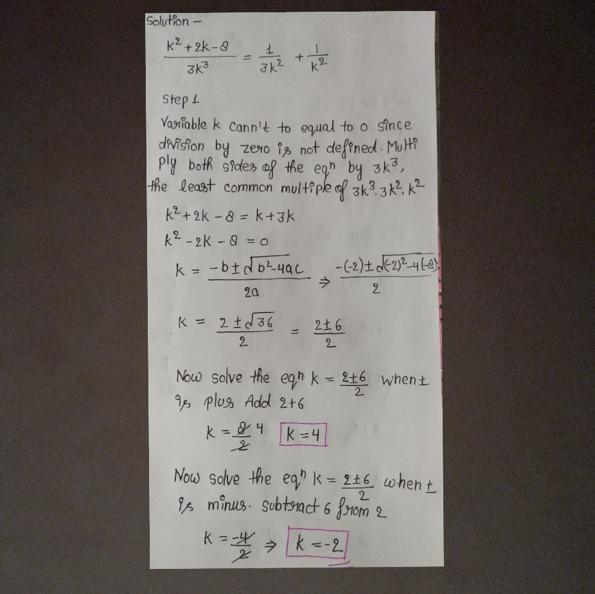 Solution -
k² + 2k - 8 / 3k³ = 1/3k² + 1/k²
Step 1
Variable k cann't to equal to 0 since
division by zero is not defined. Multi
ply both sides of the eqⁿ by 3k³,
the least common multiple of 3k³, 3k², k²
k² + 2k - 8 = k + 3k
k² - 2k - 8 = 0
k = -b ± √b² - 4ac / 2a ⇒ -(-2) ± √(-2)² - 4(-8) / 2
k = 2 ± √36 / 2 = 2 ± 6 / 2
Now solve the eqⁿ k = 2±6/2 when ±
is plus Add 2+6
k = 8/2 4 k = 4
Now solve the eqⁿ k = 2±6/2 when ±
is minus. subtract 6 from 2
k = -4/2 ⇒ k = -2